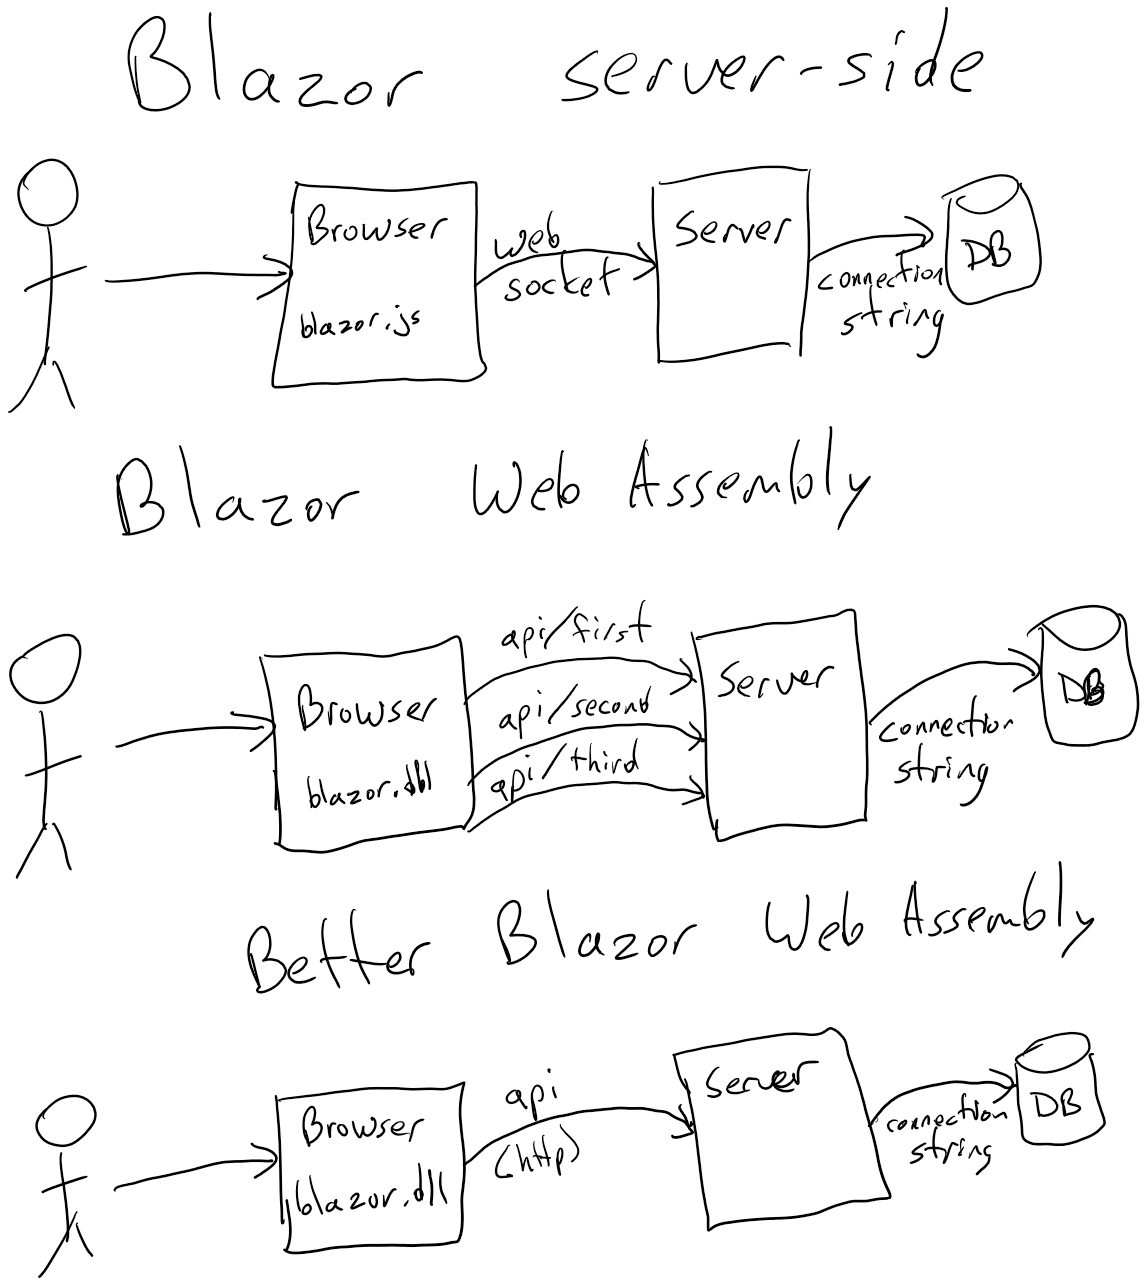 Blazor server-side
Browser
blazor.js
web
socket
Server
connection
string
DB
Blazor Web Assembly
Browser
blazor.dll
api/first
api/second
api/third
Server
connection
string
DB
Better Blazor Web Assembly
Browser
blazor.dll
api
(http)
Server
connection
string
DB